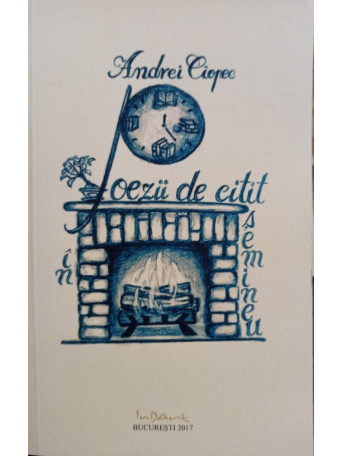 Andrei Ciopec
poezii de citit
în
șemineu
InDArt
BUCUREȘTI 2017